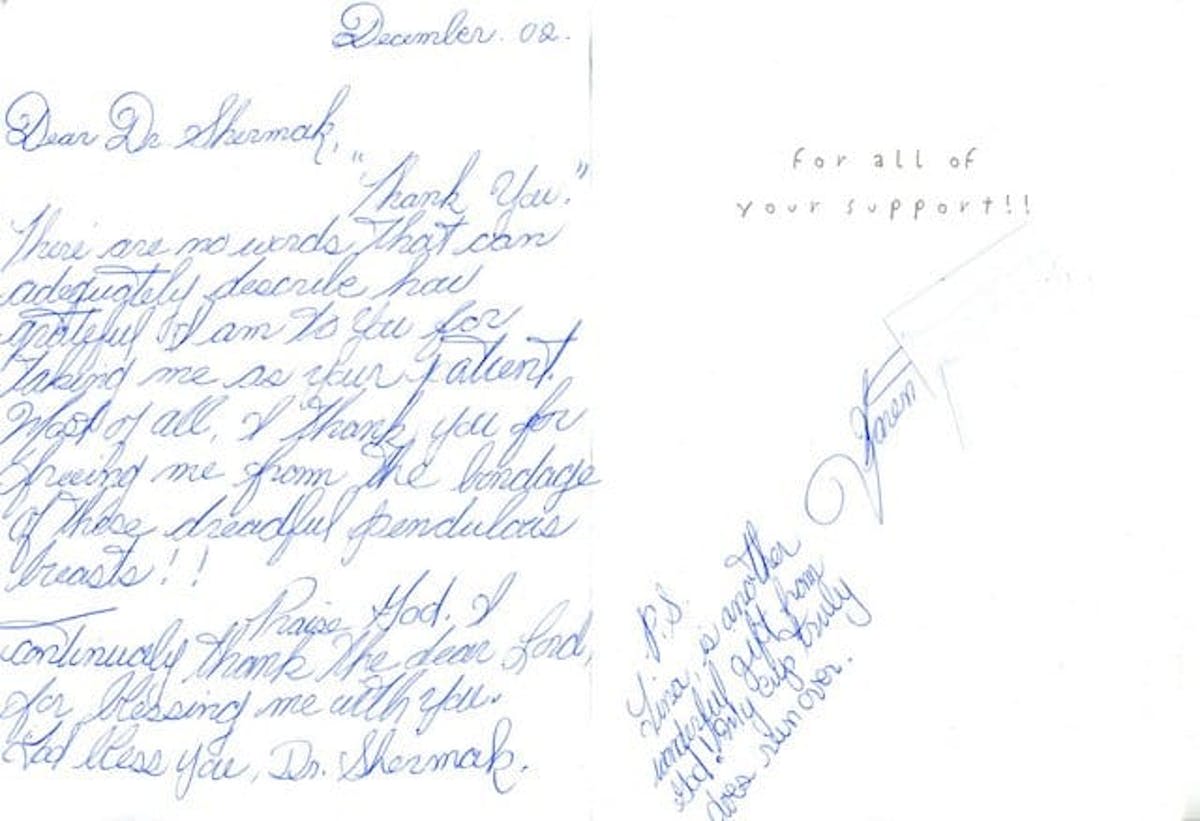 December. 02.
Dear Dr. Shermak,
"Thank You."
There are no words that can
adequately describe how
grateful I am to you for
taking me as your patient.
Most of all, I thank you for
freeing me from the bondage
of those dreadful pendulous
breasts!!
Praise God. I
continually thank the dear Lord,
for blessing me with you.
God bless you, Dr. Shermak.
for all of
your support!!
P.S.
Lisa is another
wonderful gift from
God. My cup truly
does run over.